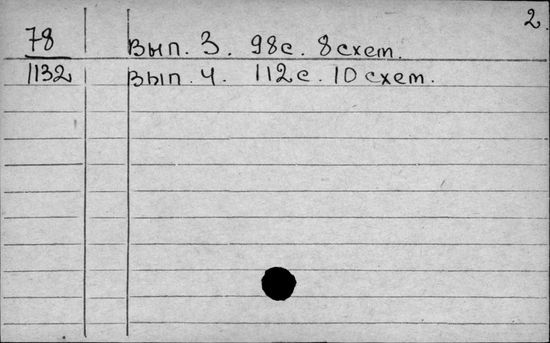 2.
78 Вып. 3. 98с. 8 схем.
1132 Вып. 4. 112с. 10 схем.